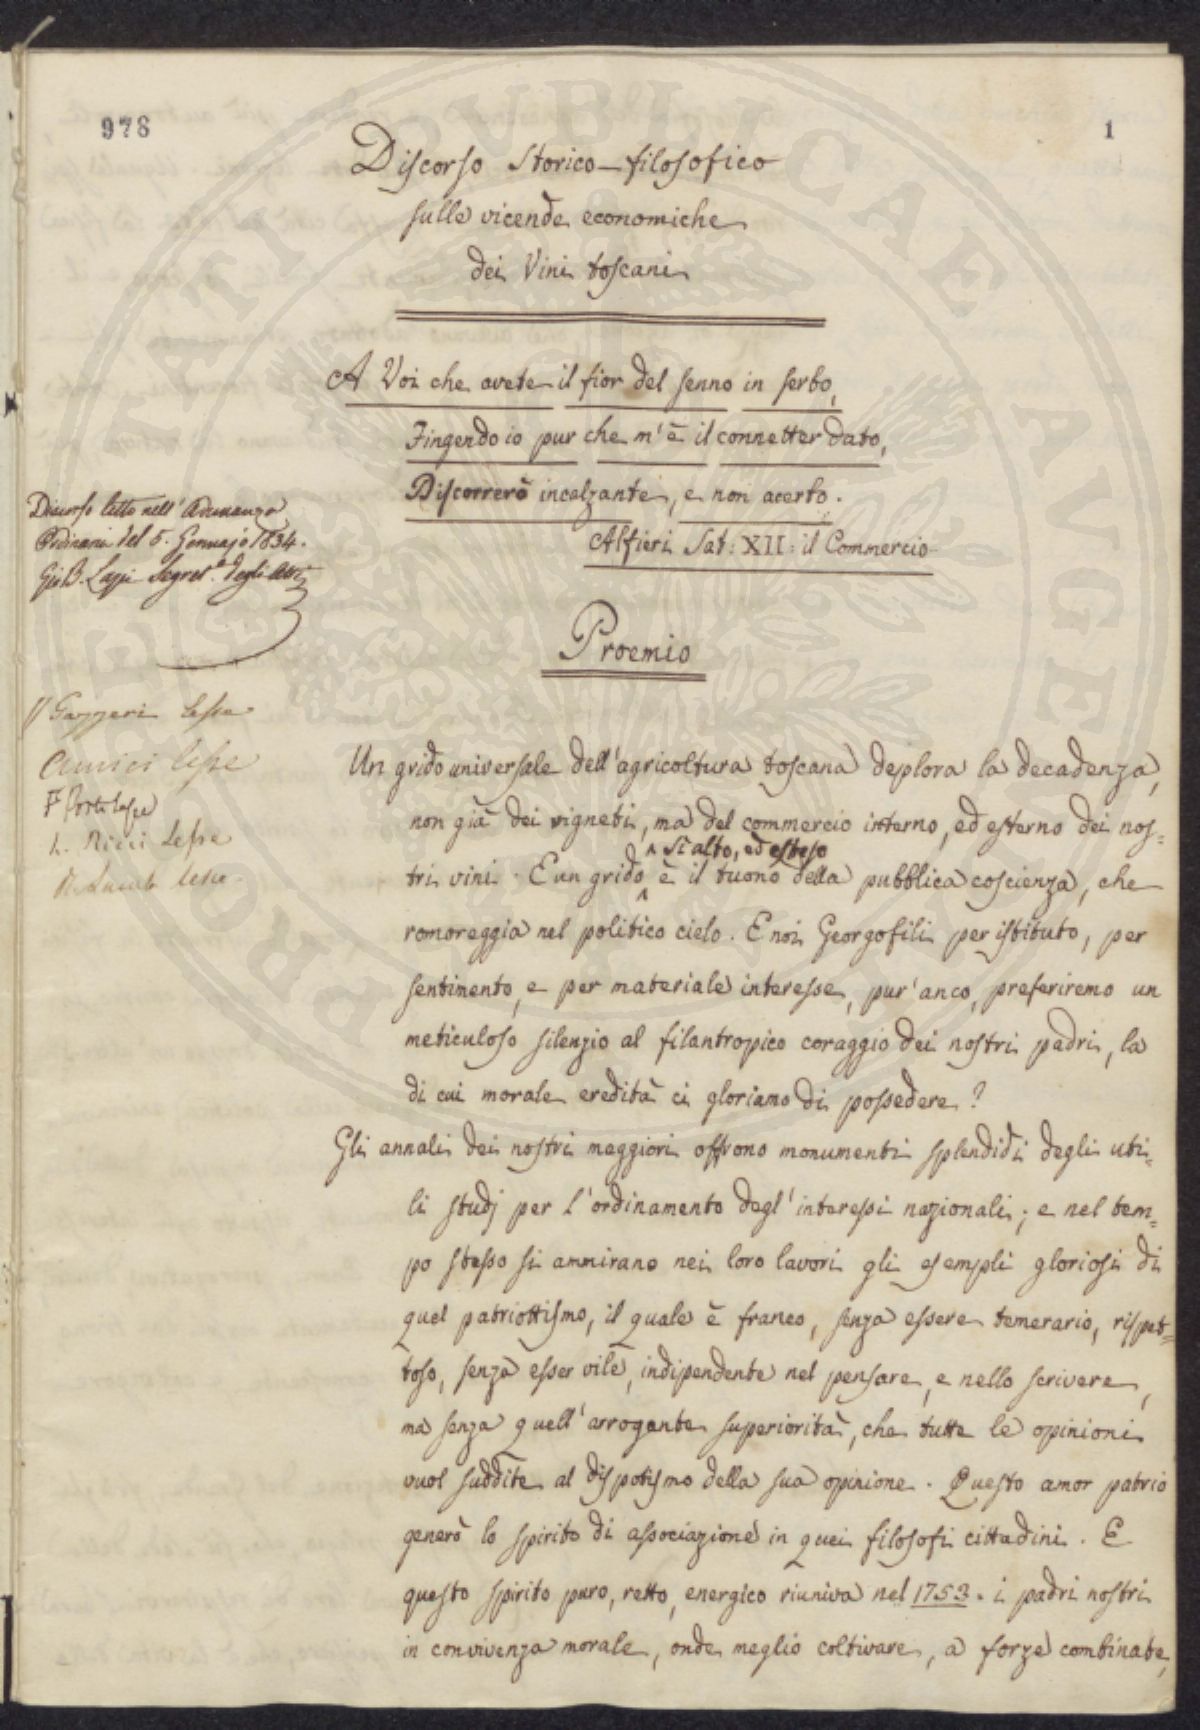 978
1
Discorso Storico-filosofico
sulle vicende economiche
dei Vini toscani
A Voi che avete il fior del senno in serbo,
Fingendo io pur che m'è il connetter dato,
Discorrerò incalzante, e non acerbo.
Alfieri Sat: XII: il Commercio
Discorso letto nell'Adunanza
Ordinaria del 5. Gennajo 1834.
Segret.º degli Atti
Proemio
Gazzeri lesse
Amici lesse
lesse
L. Ricci Lesse
lesse
Un grido universale dell'agricoltura toscana deplora la decadenza,
non già dei vigneti, ma del commercio interno, ed esterno dei nos=
sì alto, ed esteso
tri vini. E un grido è il tuono della pubblica coscienza, che
romoreggia nel politico cielo. E noi Georgofili per istituto, per
sentimento, e per materiale interesse, pur'anco, preferiremo un
meticuloso silenzio al filantropico coraggio dei nostri padri, la
di cui morale eredità ci gloriamo di possedere?
Gli annali dei nostri maggiori offrono monumenti splendidi degli uti=
li studj per l'ordinamento degl'interessi nazionali; e nel tem=
po stesso si ammirano nei loro lavori gli esempli gloriosi di
quel patriottismo, il quale è franco, senza essere temerario, rispet=
toso, senza esser vile, indipendente nel pensare, e nello scrivere,
ma senza quell'arrogante superiorità, che tutte le opinioni
vuol suddite al dispotismo della sua opinione. Questo amor patrio
generò lo spirito di associazione in quei filosofi cittadini. E
questo spirito puro, retto, energico riuniva nel 1753. i padri nostri
in convivenza morale, onde meglio coltivare, a forze combinate,